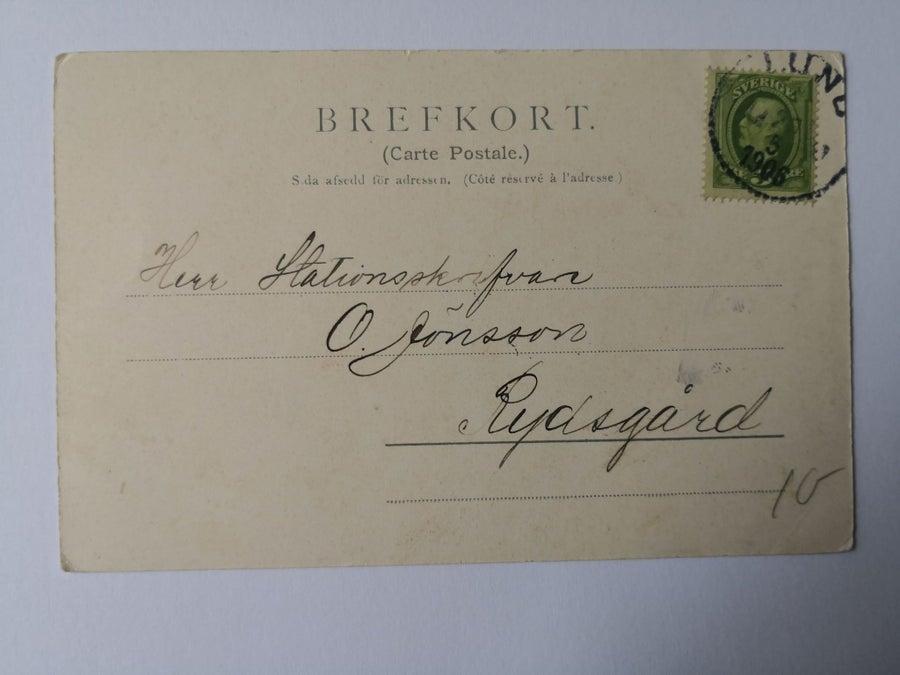 BREFKORT.
(Carte Postale.)
Sida afsedd för adressen. (Côté réservé à l'adresse)
SVERIGE
LUND
5
1906
Herr Stationsskrifvare
O. Jönsson
Rydsgård
10